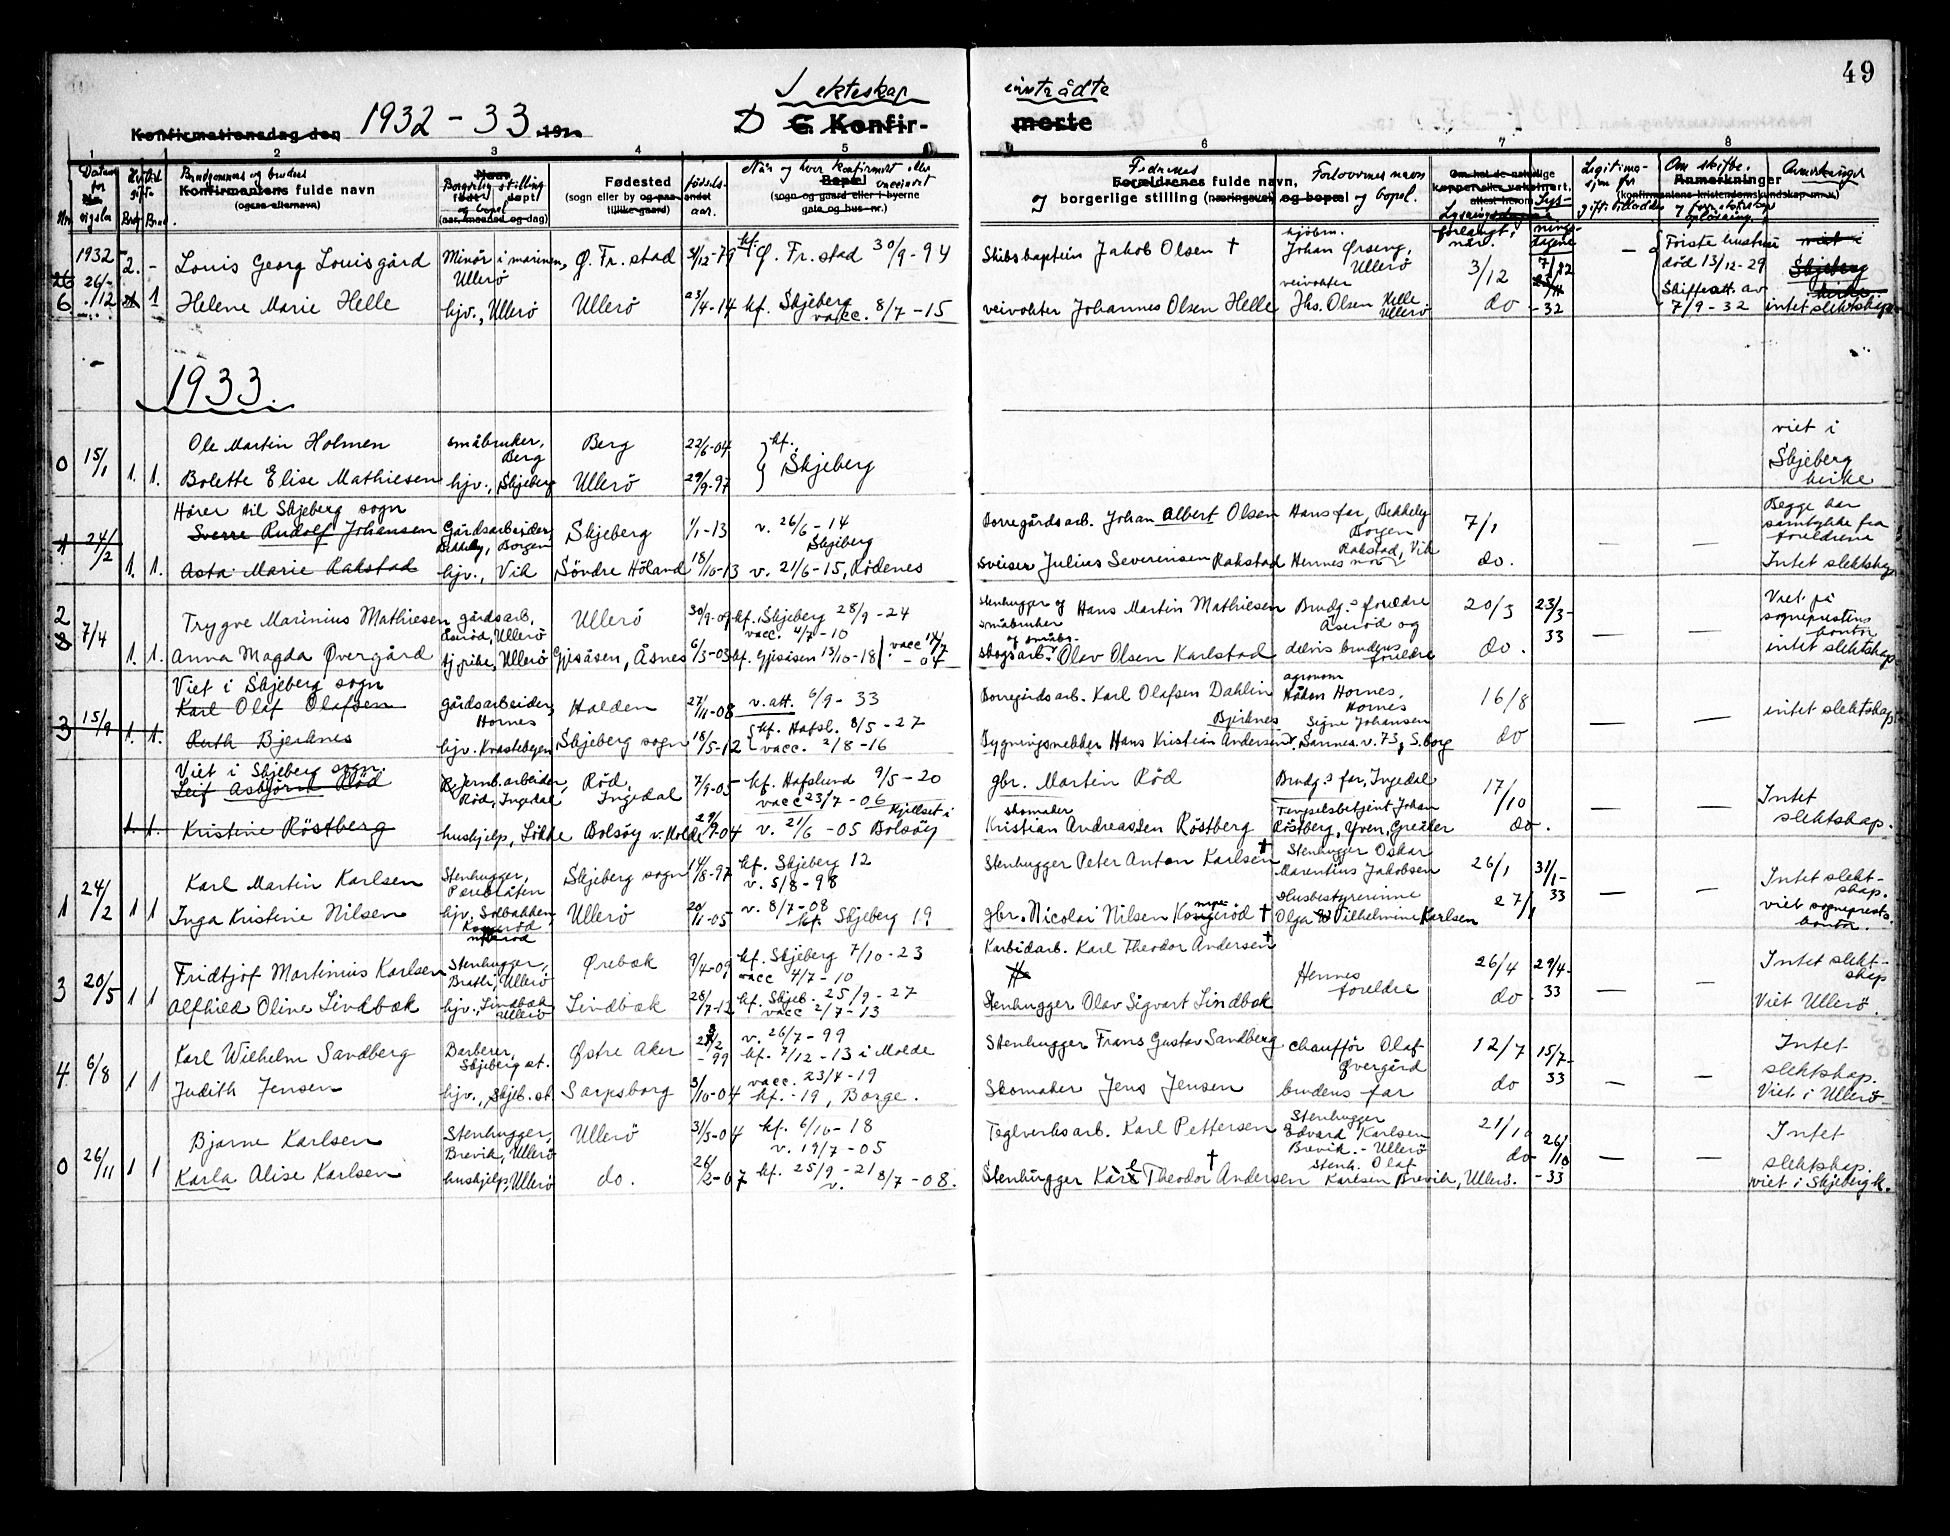 49
I ekteskap inntrådte
Konfirmationsdag den 1932-33 19
D C. Konfirmerte
1 2 3 4 5 6 7 8
Nr. Datum for vigsla
Hvilket gifte Brg. Brud.
Brudgommens og brudens
Konfirmantens fulde navn
(ogsaa efternavn)
Naar
Borgerlig stilling
født døpt
og bopel
(aar, maaned og dag)
Fødested
(sogn eller by og paa landet
tillike gaard)
fødsels-
aar.
Når og hvor konfirmert eller
Bopæl vaccinert
(sogn og gaard eller i byerne
gate og hus-nr.)
Fedrenes
Forældrenes fulde navn,
og borgerlige stilling (næringsvei) og bopæl
Forlovernes navn
og bopel.
Om hat de naturlige
kopper eller vaksinert,
attest herom
Lysningsdagene
forlangt, når.
Legitima-
sjon for
giftetilladelse
Om skifte.
Anmerkninger
(konfirmantens kristendomskundskap m.m.)
og forr. ekteskaps
opløsning.
Anmerkninger
1932
26 26/12 2. - Louis Georg Louisgård Minör i marinen, Ullerö Ø. Fr. stad 31/12-79 kf. Ø. Fr. stad 30/9-94 Skibskaptein Jakob Olsen † kjöbm. Johan Ørseng, Ullerö 3/12 7/12 — Förste hustru död 13/12-29 viet i Skjeberg kirke
6 1 Helene Marie Helle hjv., Ullerö Ullerö 23/4-14 kf. Skjeberg vacc. 8/7-15 veivokter Johannes Olsen Helle veivokter Jhs. Olsen Helle Ullerö do -32 Skifteatt. av 7/9-32 intet slektskap
1933.
0 15/1 1. Ole Martin Holmen småbruker, Berg Berg 22/6-04 kf. Skjeberg viet i Skjeberg kirke
1. Bolette Elise Mathiesen hjv., Skjeberg Ullerö 29/9-97
Hører til Skjeberg sogn
1 24/2 Sverre Rudolf Johansen Gårdsarbeider, Bekkely, Borgen Skjeberg 1/1-13 v. 26/6-14 Skjeberg Borregårdsarb. Johan Albert Olsen Hans far, Bekkely Borgen 7/1 — — Begge har samtykke fra foreldrene
1. 1. Asta Marie Rakstad hjv., Vik Söndre Höland 18/10-13 v. 21/6-15, Rödenes sveiser Julius Severinsen Rakstad Rakstad, Vik Hennes mor do. Intet slektskap
2 7/4 Trygve Marinius Mathiesen gårdsarb, Aseröd, Ullerö Ullerö 30/9-09 kf. Skjeberg 28/9-24 vacc. 4/7-10 Stenhugger og småbruker Hans Martin Mathiesen Brudg.s foreldre Aseröd og 20/3 23/3-33 — — Viet på sogneprestens kontor
8 1. 1. Anna Magda Øvergård tj.pike, Ullerö Gjesåsen, Åsnes 6/3-03 kf. Gjesåsen 13/10-18 vacc. 14/7-04 skogsarb. og småbr. Olav Olsen Karlstad delvis brudens foreldre do. intet slektskap
Viet i Skjeberg sogn
3 15/9 Karl Olaf Olafsen gårdsarbeider, Hornes Halden 27/11-08 v. att. 6/9-33 Borregårdsarb. Karl Olafsen Dahlin agronom Håkon Hornes, Hornes 16/8 — — intet slektskap
1. 1. Ruth Bjerknes hjv. Skjeberg sogn 18/5-12 kf. Hafsl. 8/5-27 vacc. 2/8-16 Bygningssnekker Hans Kristian Andersen Bjerknes Signe Johansen Sannesv. 73, S.borg do
Viet i Skjeberg sogn.
Leif Asbjørn Röd Jernb.arbeider, Röd, Ingedal Röd, Ingedal 7/9-05 kf. Hafslund 9/5-20 vacc 23/7-06 gbr. Martin Röd Brudg.s far, Ingedal 17/10 — — Intet slektskap.
1. 1. Kristine Röstberg hushjelp, Lökke Bolsöy v. Molde 29/9-04 v. 21/6-05 Kjellset i Bolsöy skomaker Kristian Andreassen Röstberg Fengselsbetjent Johan Röstberg, Yven, Greåker do.
1 24/2 1 Karl Martin Karlsen Stenhugger, Skjeberg sogn 14/8-97 kf. Skjeberg 12 v. 5/8-98 Stenhugger Peter Anton Karlsen † Stenhugger Oskar Marentius Jakobsen 26/1 31/1-33 — — Intet slektskap.
1 Inga Kristine Nilsen hjv. Solbakken Ullerö 20/11-05 v. 8/7-08 kf. Skjeberg 19 gbr. Nicolai Nilsen † Husbestyrerinne Olga Vilhelmine Karlsen 27/1 viet sogneprests. kontor.
3 20/5 1 Fridtjof Martinius Karlsen Stenhugger, Bratli, Ullerö Ørebæk 9/4-09 kf. Skjeberg 7/10-23 vacc 4/7-10 Karbidarb. Karl Theodor Andersen † Hennes foreldre 26/4 29/4-33 — — Intet slektskap
1 Alfhild Oline Lindbæk hjv., Lindbæk Ullerö Lindbæk 28/7-12 kf. Skjeb. 25/9-27 vacc 2/7-13 Stenhugger Olav Sigvart Lindbæk do. Viet Ullerö.
4 6/8 1 Karl Wilhelm Sandberg Barberer, Skjeberg st. Østre Aker 2-99 v. 26/7-99 kf. 7/12-13 i Molde Stenhugger Frans Gustav Sandberg chaufför Olaf Övergård 12/7 15/7-33 — — Intet slektskap.
1 Judith Jensen hjv., Skjeb. st. Sarpsborg 3/10-04 vacc. 23/4-19 kf. -19, Borge. Skomaker Jens Jensen brudens far do Viet i Ullerö
0 26/11 1 Bjarne Karlsen Stenhugger, Brevik, Ullerö Ullerö 31/3-04 kf. 6/10-18 v. 19/7-05 Teglverksarb. Karl Pettersen Stenhugger Edvard Karlsen Brevik. - Ullerö 21/10 26/10-33 — — Intet slektskap.
1 Karla Alise Karlsen hushjelp, Ullerö do. 26/2-07 kf. 25/9-21 v. 8/7-08. Stenhugger Karl Theodor Andersen † Stenh. Olaf Karlsen Brevik, Ullerö. do viet i Skjeberg k.